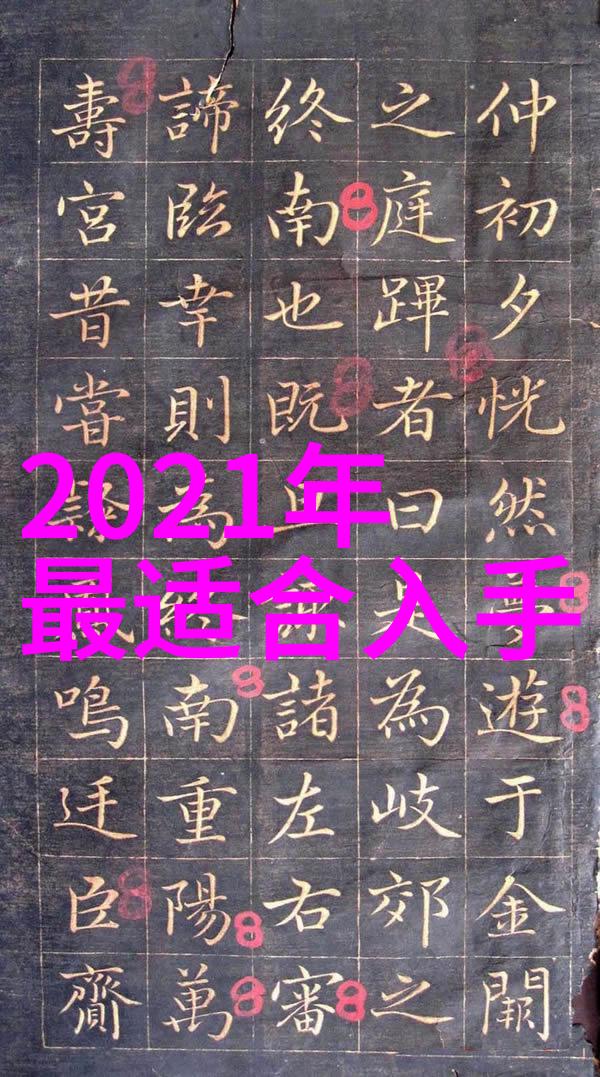 仲初夕恍然夢遊于金闕
之庭蹕者曰是為岐郊之
終南也既旦諸左右審
諦臨幸則為終南重陽萬
壽宮昔嘗鳳鳴廷臣齎
2021年
最适合入手